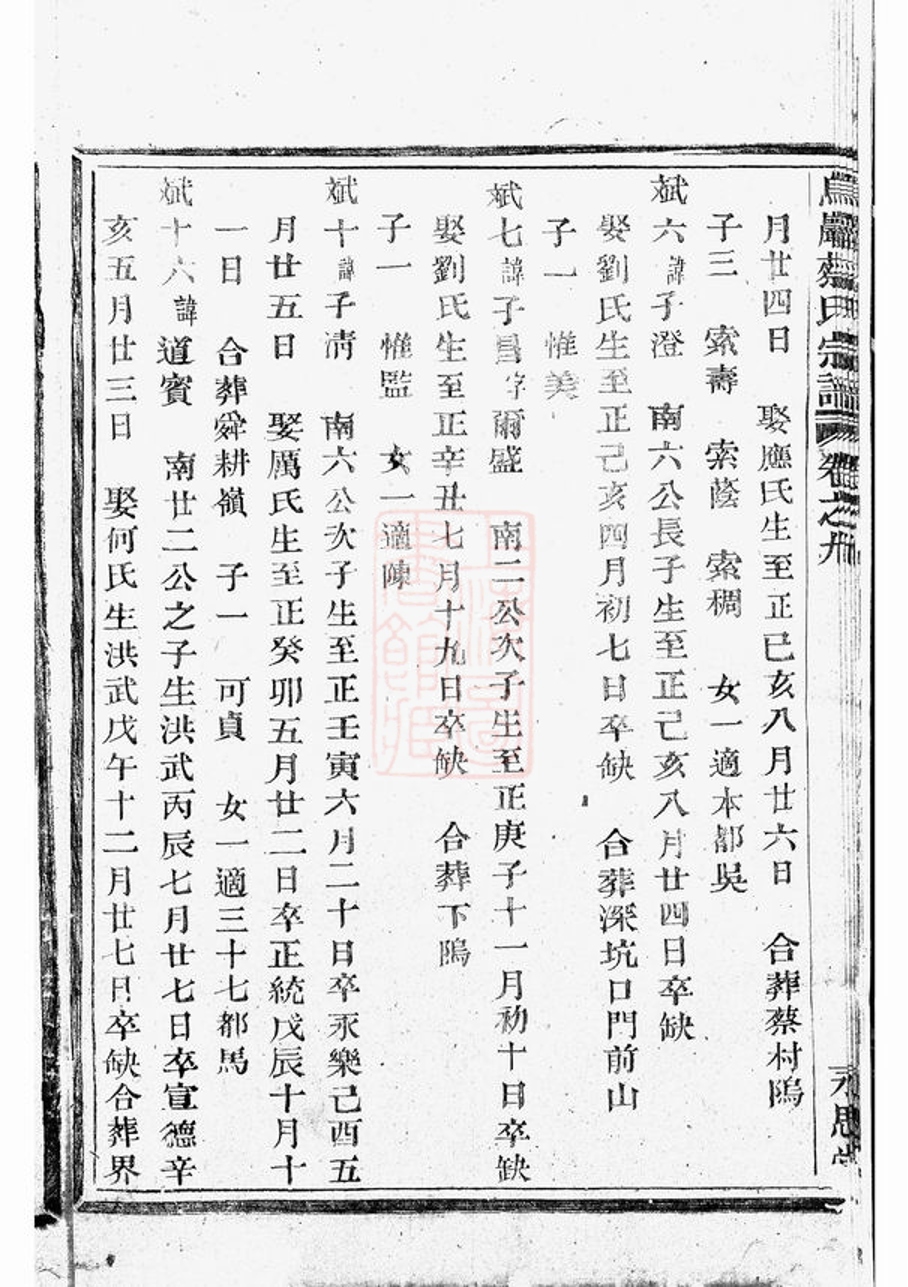 蔡氏宗譜 卷之九
月廿四日 娶應氏生至正己亥八月廿六日 合葬蔡村隖
子三 索壽 索蔭 索稠 女一適本都吳
斌六諱子澄 南六公長子生至正己亥八月廿四日卒缺
娶劉氏生至正己亥四月初七日卒缺 合葬深坑口門前山
子一 惟美
斌七諱子昌字爾盛 南二公次子生至正庚子十一月初十日卒缺
娶劉氏生至正辛丑七月十九日卒缺 合葬下隖
子一 惟監 女一適陳
斌十諱子淸 南六公次子生至正壬寅六月二十日卒永樂己酉五
月廿五日 娶厲氏生至正癸卯五月廿二日卒正統戊辰十月十
一日 合葬舜耕嶺 子一 可貞 女一適三十七都馬
斌十六諱道賓 南廿二公之子生洪武丙辰七月廿七日卒宣德辛
亥五月廿三日 娶何氏生洪武戊午十二月廿七日卒缺合葬界